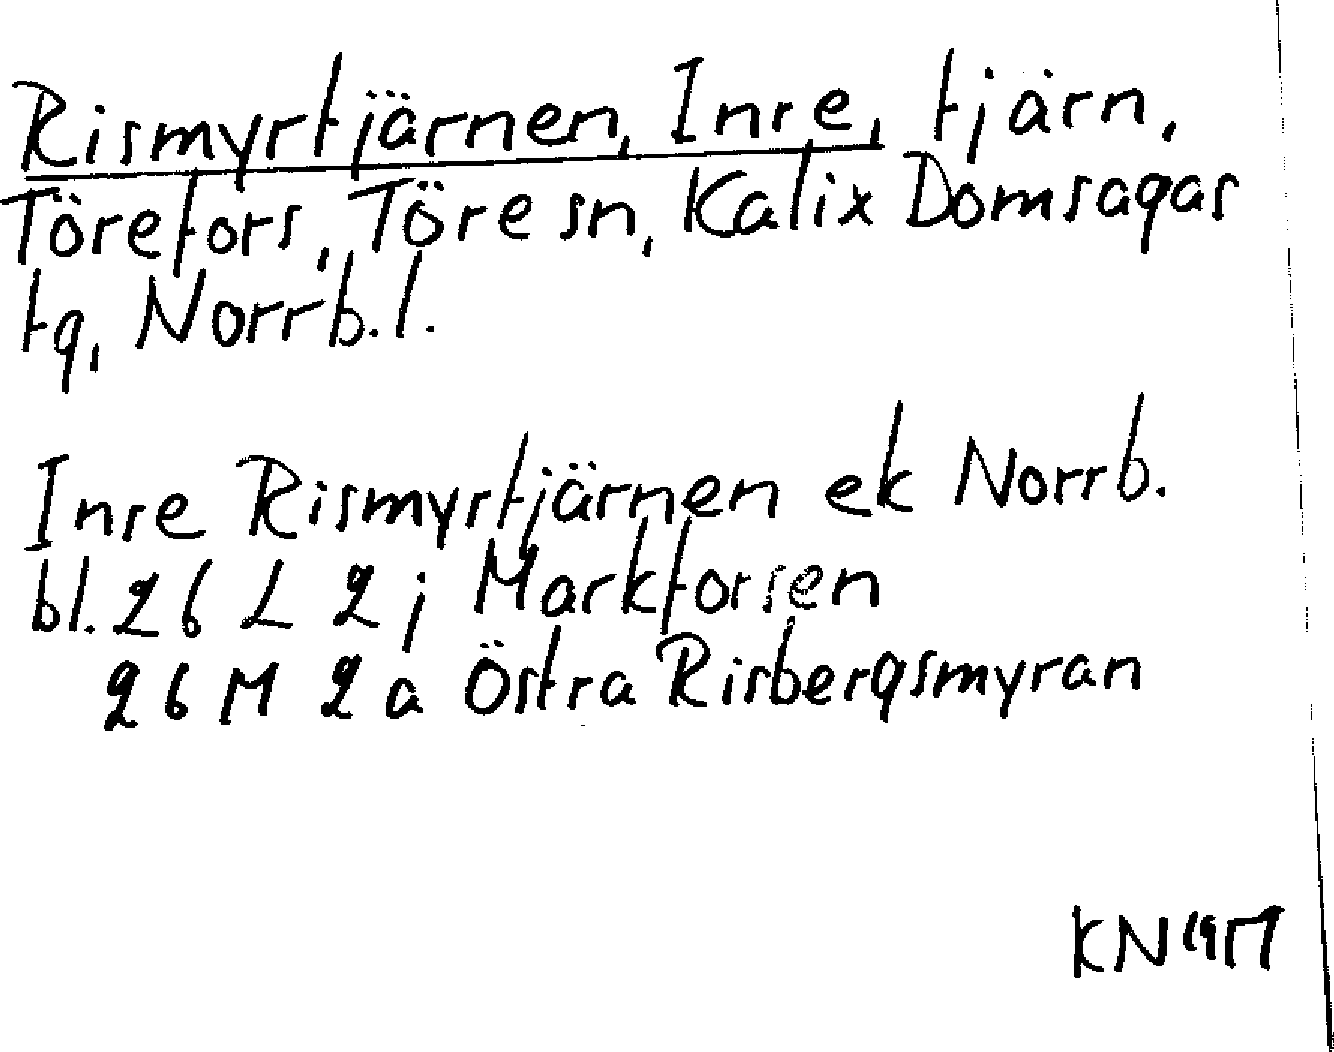 Rismyrtjärnen, Inre, tjärn,
Törefors, Töre sn, Kalix Domsagas
tg, Norrb. l.
Inre Rismyrtjärnen ek Norrb.
bl. 26 L 2 j Markforsen
26 M 2 a Östra Risbergsmyran
KN